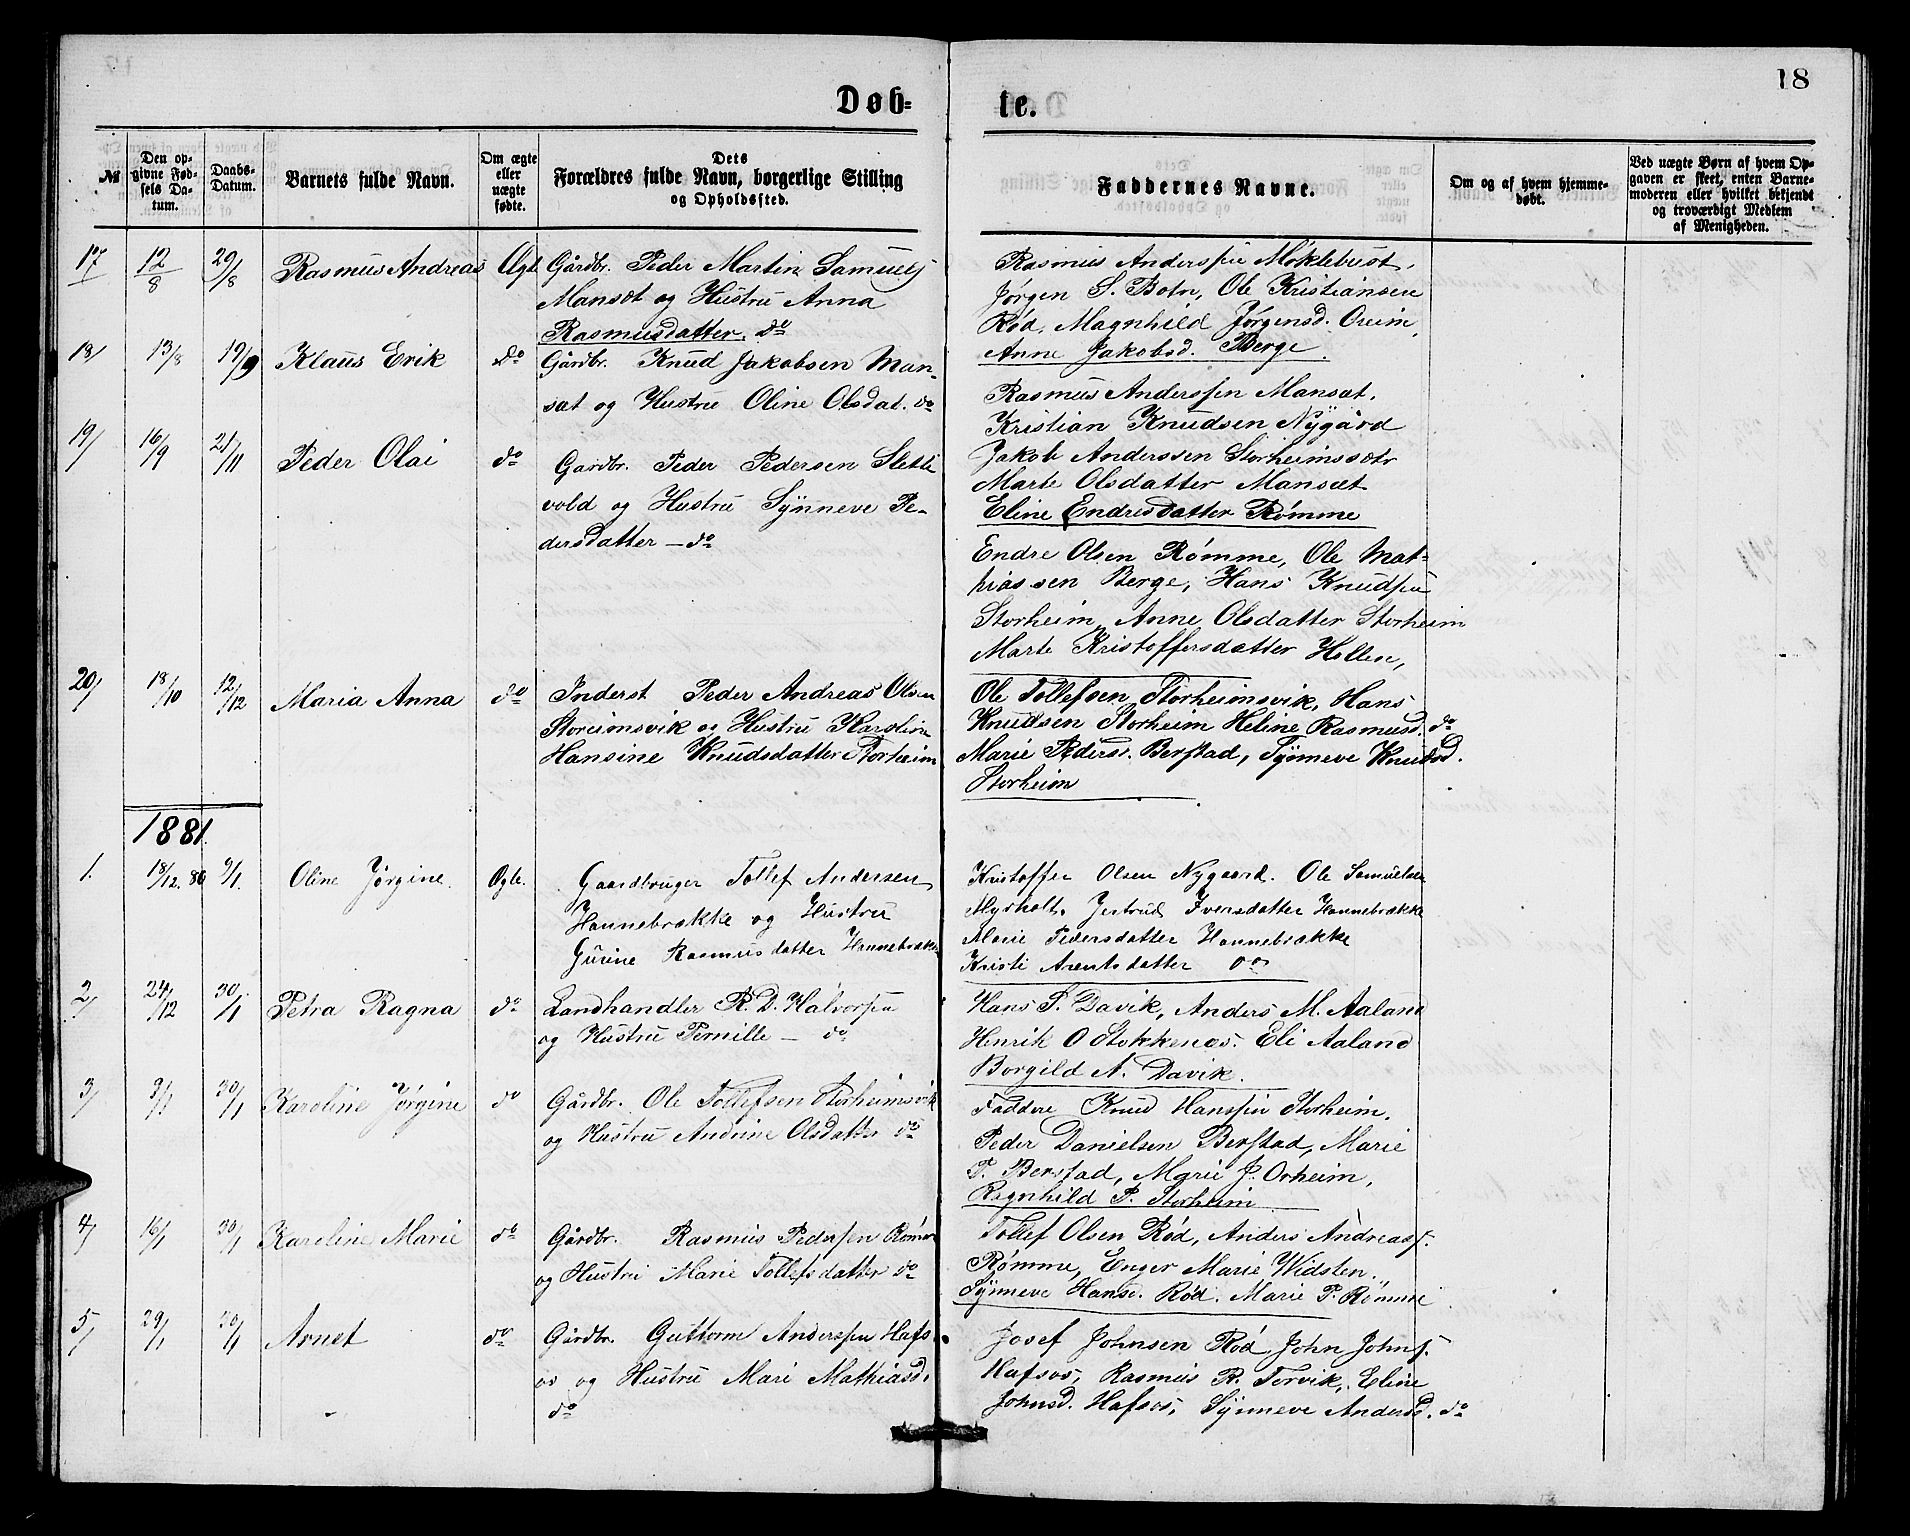 18
Døb-
te.
№
Den op-
givne Fød-
sels Da-
tum.
Daabs-
Datum.
Barnets fulde Navn.
Om ægte
eller
uægte
fødte.
Dets
Forældres fulde Navn, borgerlige Stilling
og Opholdssted.
Faddernes Navne.
Om og af hvem hjemme-
døbt.
Ved uægte Børn af hvem Op-
gaven er skeet, enten Barne-
moderen eller hvilket bekjendt
og troværdigt Medlem
af Menigheden.
17 12/8 29/8 Rasmus Andreas Ægt. Gårdbr. Peder Martin Samuels
Mansæt og Hustru Anna
Rasmusdatter. do
Rasmus Anderssen Møklebust,
Jørgen S. Botn, Ole Kristiansen
Rød, Magnhild Jørgensd. Oreim,
Anne Jakobsd. Berge
18/ 13/8 19/9 Klaus Erik do Gårdbr. Knud Jakobsen Man-
sæt og Hustru Oline Olsdat. do
Rasmus Anderssen Mansæt,
Kristian Knudsen Nygård
Jakob Anderssen Storheimssætr
Marte Olsdatter Mansæt
Eline Endresdatter Rømme
19/ 16/9 21/11 Peder Olai do Gardbr. Peder Pedersen Slette
vold og Hustru Synneve Pe-
dersdatter - do
Endre Olsen Rømme, Ole Mat-
hiassen Berge, Hans Knudsen
Storheim, Anne Olsdatter Storheim
Marte Kristoffersdatter Hellen,
20/ 18/10 12/12 Maria Anna do Inderst Peder Andreas Olsen
Storeimsvik og Hustru Karoline
Hansine Knudsdatter Storheim
Ole Tollefsen Storheimsvik, Hans
Knudsen Storheim Heline Rasmusd. do
Marie Pedersd. Berstad, Synneve Knudsd.
Storheim
1881.
1. 18/12. 80 9/1. Oline Jørgine. Ægte. Gaardbruger Tollef Andersen
Hannebrække og Hustru
Gurine Rasmusdatter Hannebrække
Kristoffer Olsen Nygaard. Ole Samuelsen
Myrholt. Jertrud Iversdatter Hannebrække
Marie Pedersdatter Hannebrække
Kristi Arentsdatter do
2/ 24/12 30/1 Petra Ragna do Landhandler R. D. Halvorsen
og Hustru Pernille - do
Hans P. Davik, Anders M. Aaland
Henrik O Stokkenæs. Eli Aaland
Borgild A. Davik.
3/ 9/1 30/1 Karoline Jørgine do Gårdbr. Ole Tollefsen Storheimsvik
og Hustru Andrine Olsdatter do
Faddere Knud Hanssen Storheim,
Peder Danielsen Berstad, Marie
P. Berstad, Marie J. Orheim,
Ragnhild P. Storheim
4/ 16/1 30/1 Karoline Marie do Gårdbr. Rasmus Pedersen Rømme
og Hustru Marie Tollefsdatter do
Tollef Olsen Rød, Anders Andreass.
Rømme, Enger Marie Widsten,
Synneve Hansd. Rød. Marie P. Rømme
5/ 29/1 30/1 Arnet do Gårdbr. Guttorm Anderssen Hafs-
os og Hustru Mari Mathiasd.
do
Josef Johnsen Rød, John Johns.
Hafsos, Rasmus R. Torvik, Eline
Johnsd. Hafsos, Synneve Andersd. do